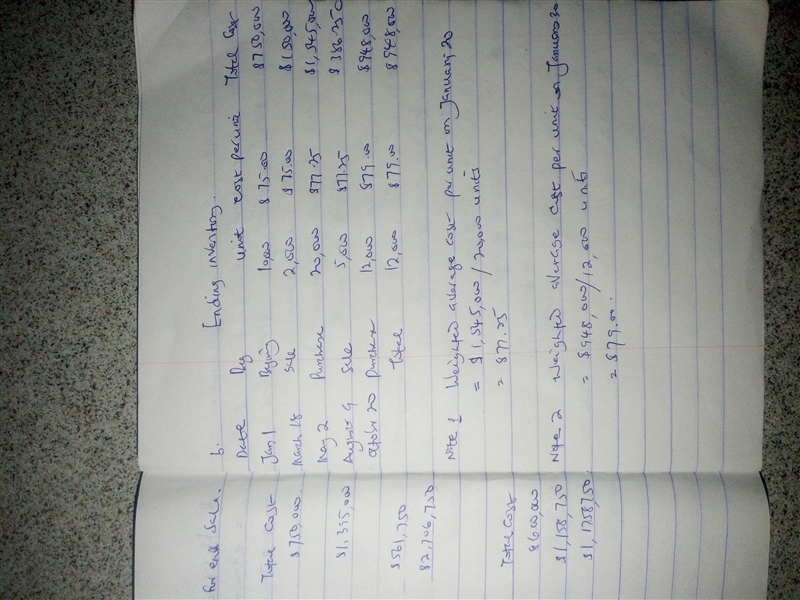 for each sale.
Total Cost
$750,000
$1,395,000
$561,750
$2,706,750
Total Cost
$600,000
$1,158,750
$1,1758750
b. Ending inventory.
Date unit cost per unit Total Cost
Jan 1 10,000 $75.00 $750,000
March 18 Sale 2,000 $75.00 $150,000
May 2 purchase 20,000 $77.25 $1,545,000
August 9 Sale 5,000 $77.25 $386.250
20 purchase 12,000 $79.00 $948,000
Total 12,000 $79.00 $948,000
Note 1 Weighted average cost per unit on January 20
= $1,545,000/20,000 units
= $77.25
Note 2 Weighted average cost per unit on January 30
= $948,000/12,000 units
= $79.00.